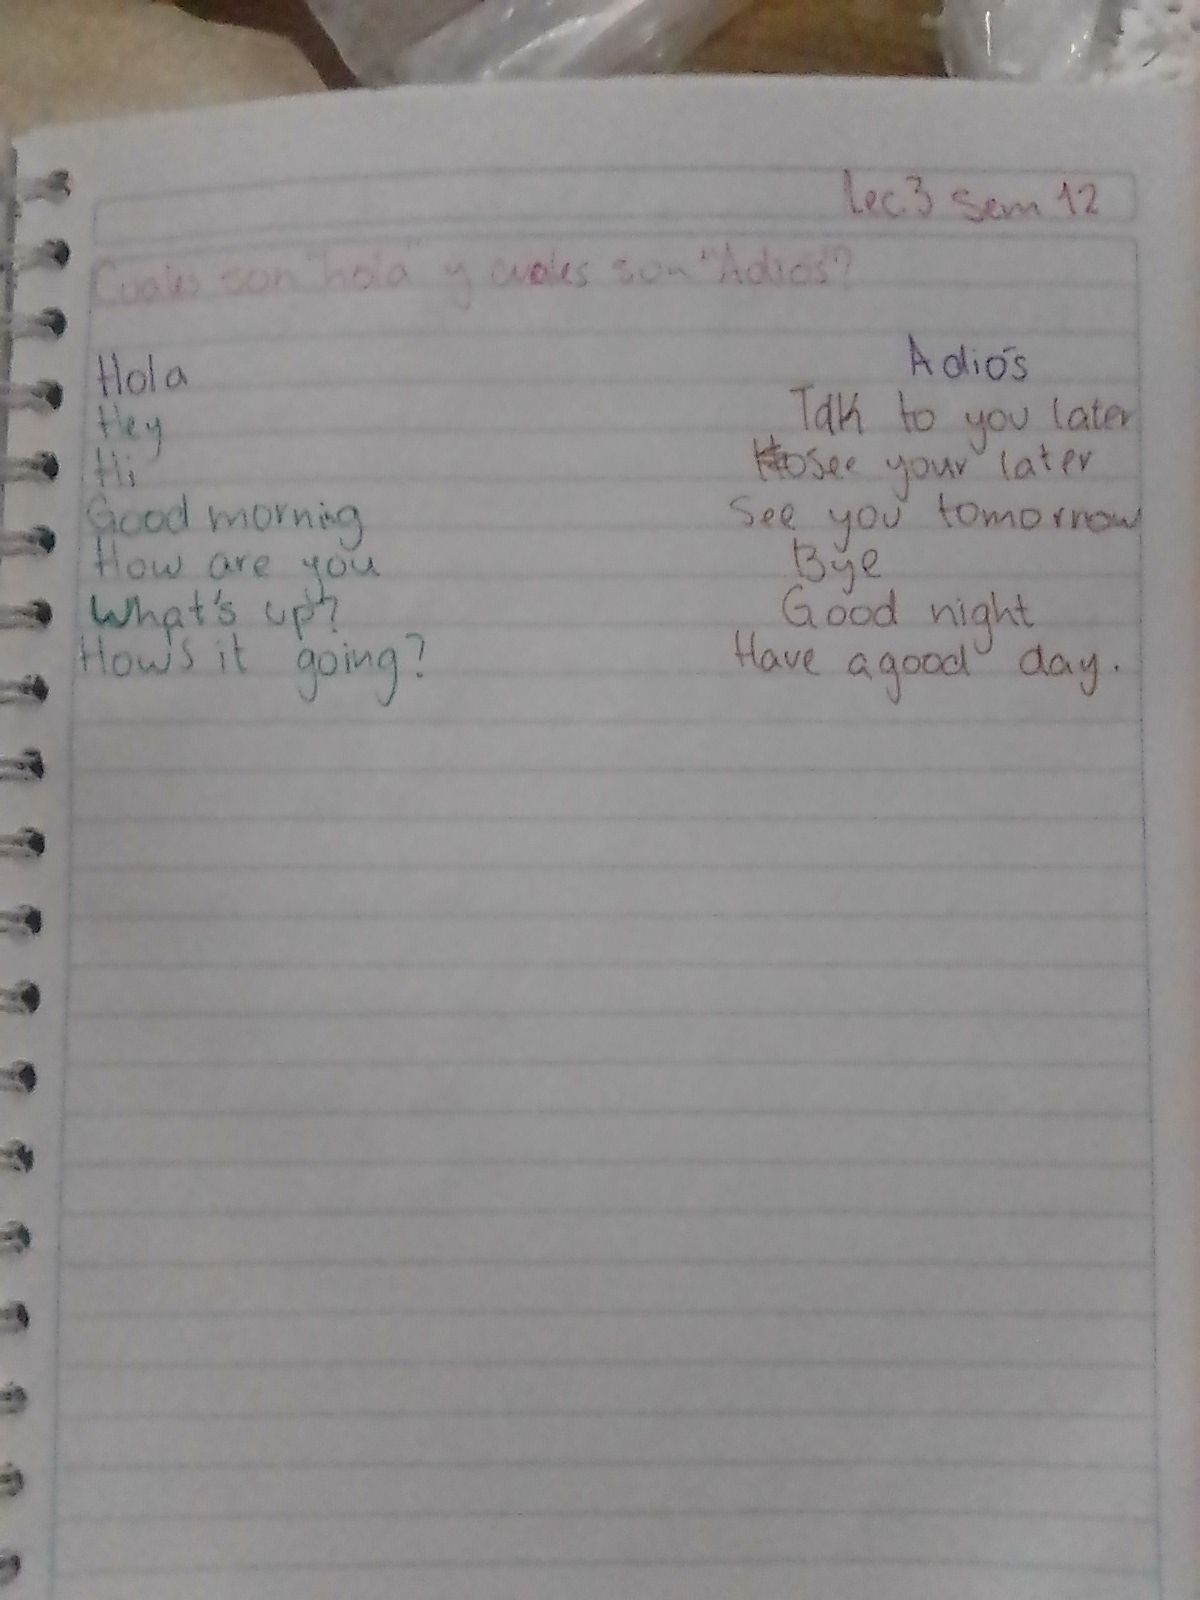 Lec.3 Sem 12
Cuales son "hola" y cuales son "Adiós"?
Hola
Adiós
Hey
Talk to you later
Hi
see your later
Good morning
See you tomorrow
How are you
Bye
What's up?
Good night
How's it going?
Have a good day.